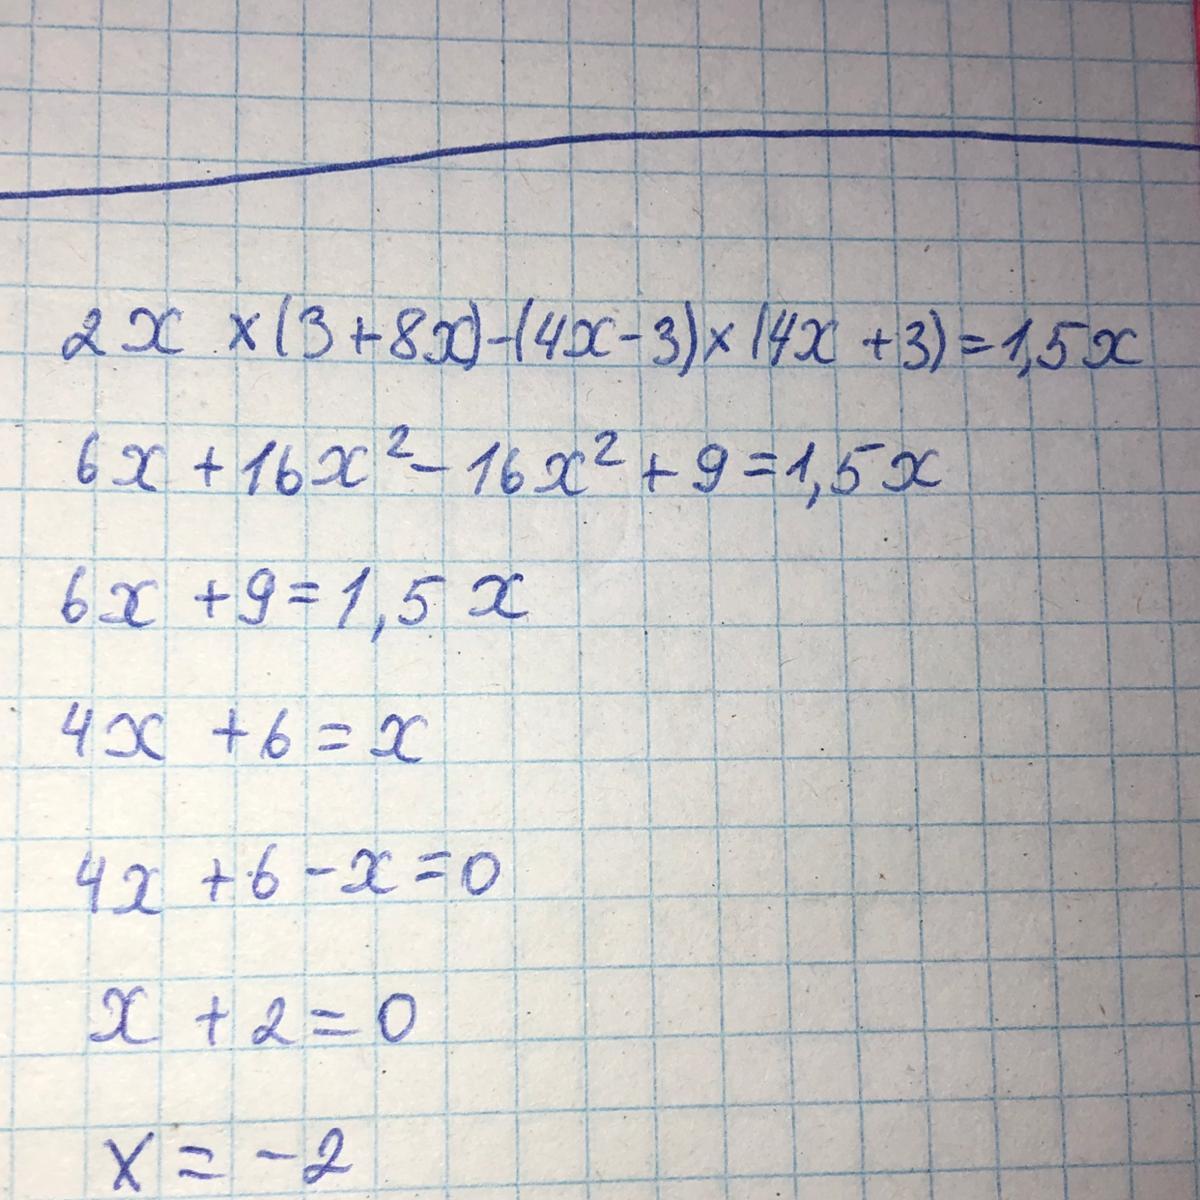 2x ×(3+8x)-(4x-3)×(4x+3)=1,5x
6x+16x²-16x²+9=1,5x
6x+9=1,5x
4x+6=x
4x+6-x=0
x+2=0
x=-2